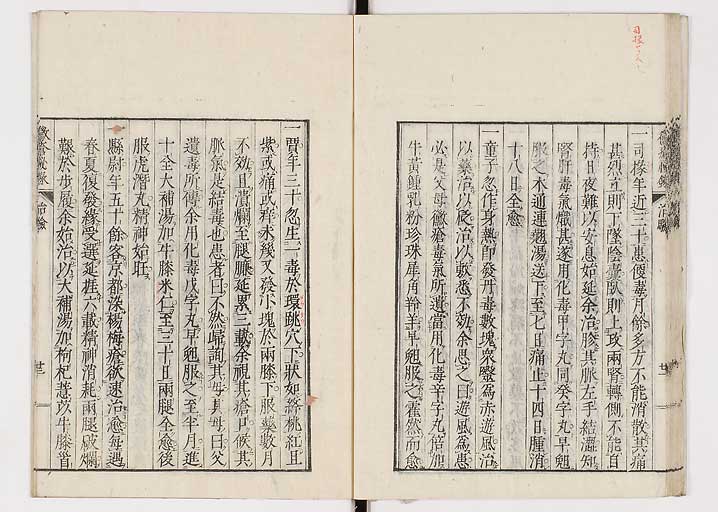 一司椽年近三十患便毒月餘多方不能消散其痛
甚烈立則下墜陰囊臥則上攻兩腎轉側不能自
持日夜難以安息始延余治胗其脈左手結澀知
腎肝毒氣熾甚遂用化毒甲字丸同癸字丸早
服之木通連翹湯送下至七日痛止十四日腫消
十八日全愈
一童子忽作身熱卽發丹毒數塊衆醫爲赤遊風治
以藥治以砭治以敷悉不効余思之曰遊風爲患
必是父母黴瘡毒氣所遺當用化毒辛字丸倍加
牛黃鍾乳粉珍珠犀角羚羊早服之霍然而愈
一賈年三十忽生一毒於環跳穴下狀如絳桃紅且
紫或痛或痒未幾又發小塊於兩膝下服藥數月
不効且潰爛至腿臁延累三載余視其瘡戸候其
脈氣是結毒也患者曰不然歸詢其母其母曰父
遺毒所傳余用化毒戊字丸早服之至半月進
十全大補湯加牛膝米仁至三十日兩腿全愈後
服虎潛丸精神始旺
一縣尉年五十餘客京都染楊梅瘡欲速治愈每遇
春夏復發緣受選延捱六載精神消耗兩腿破爛
艱於步履余始治以大補湯加枸杞薏玖牛膝首
黴瘡秘錄
治驗
廿二